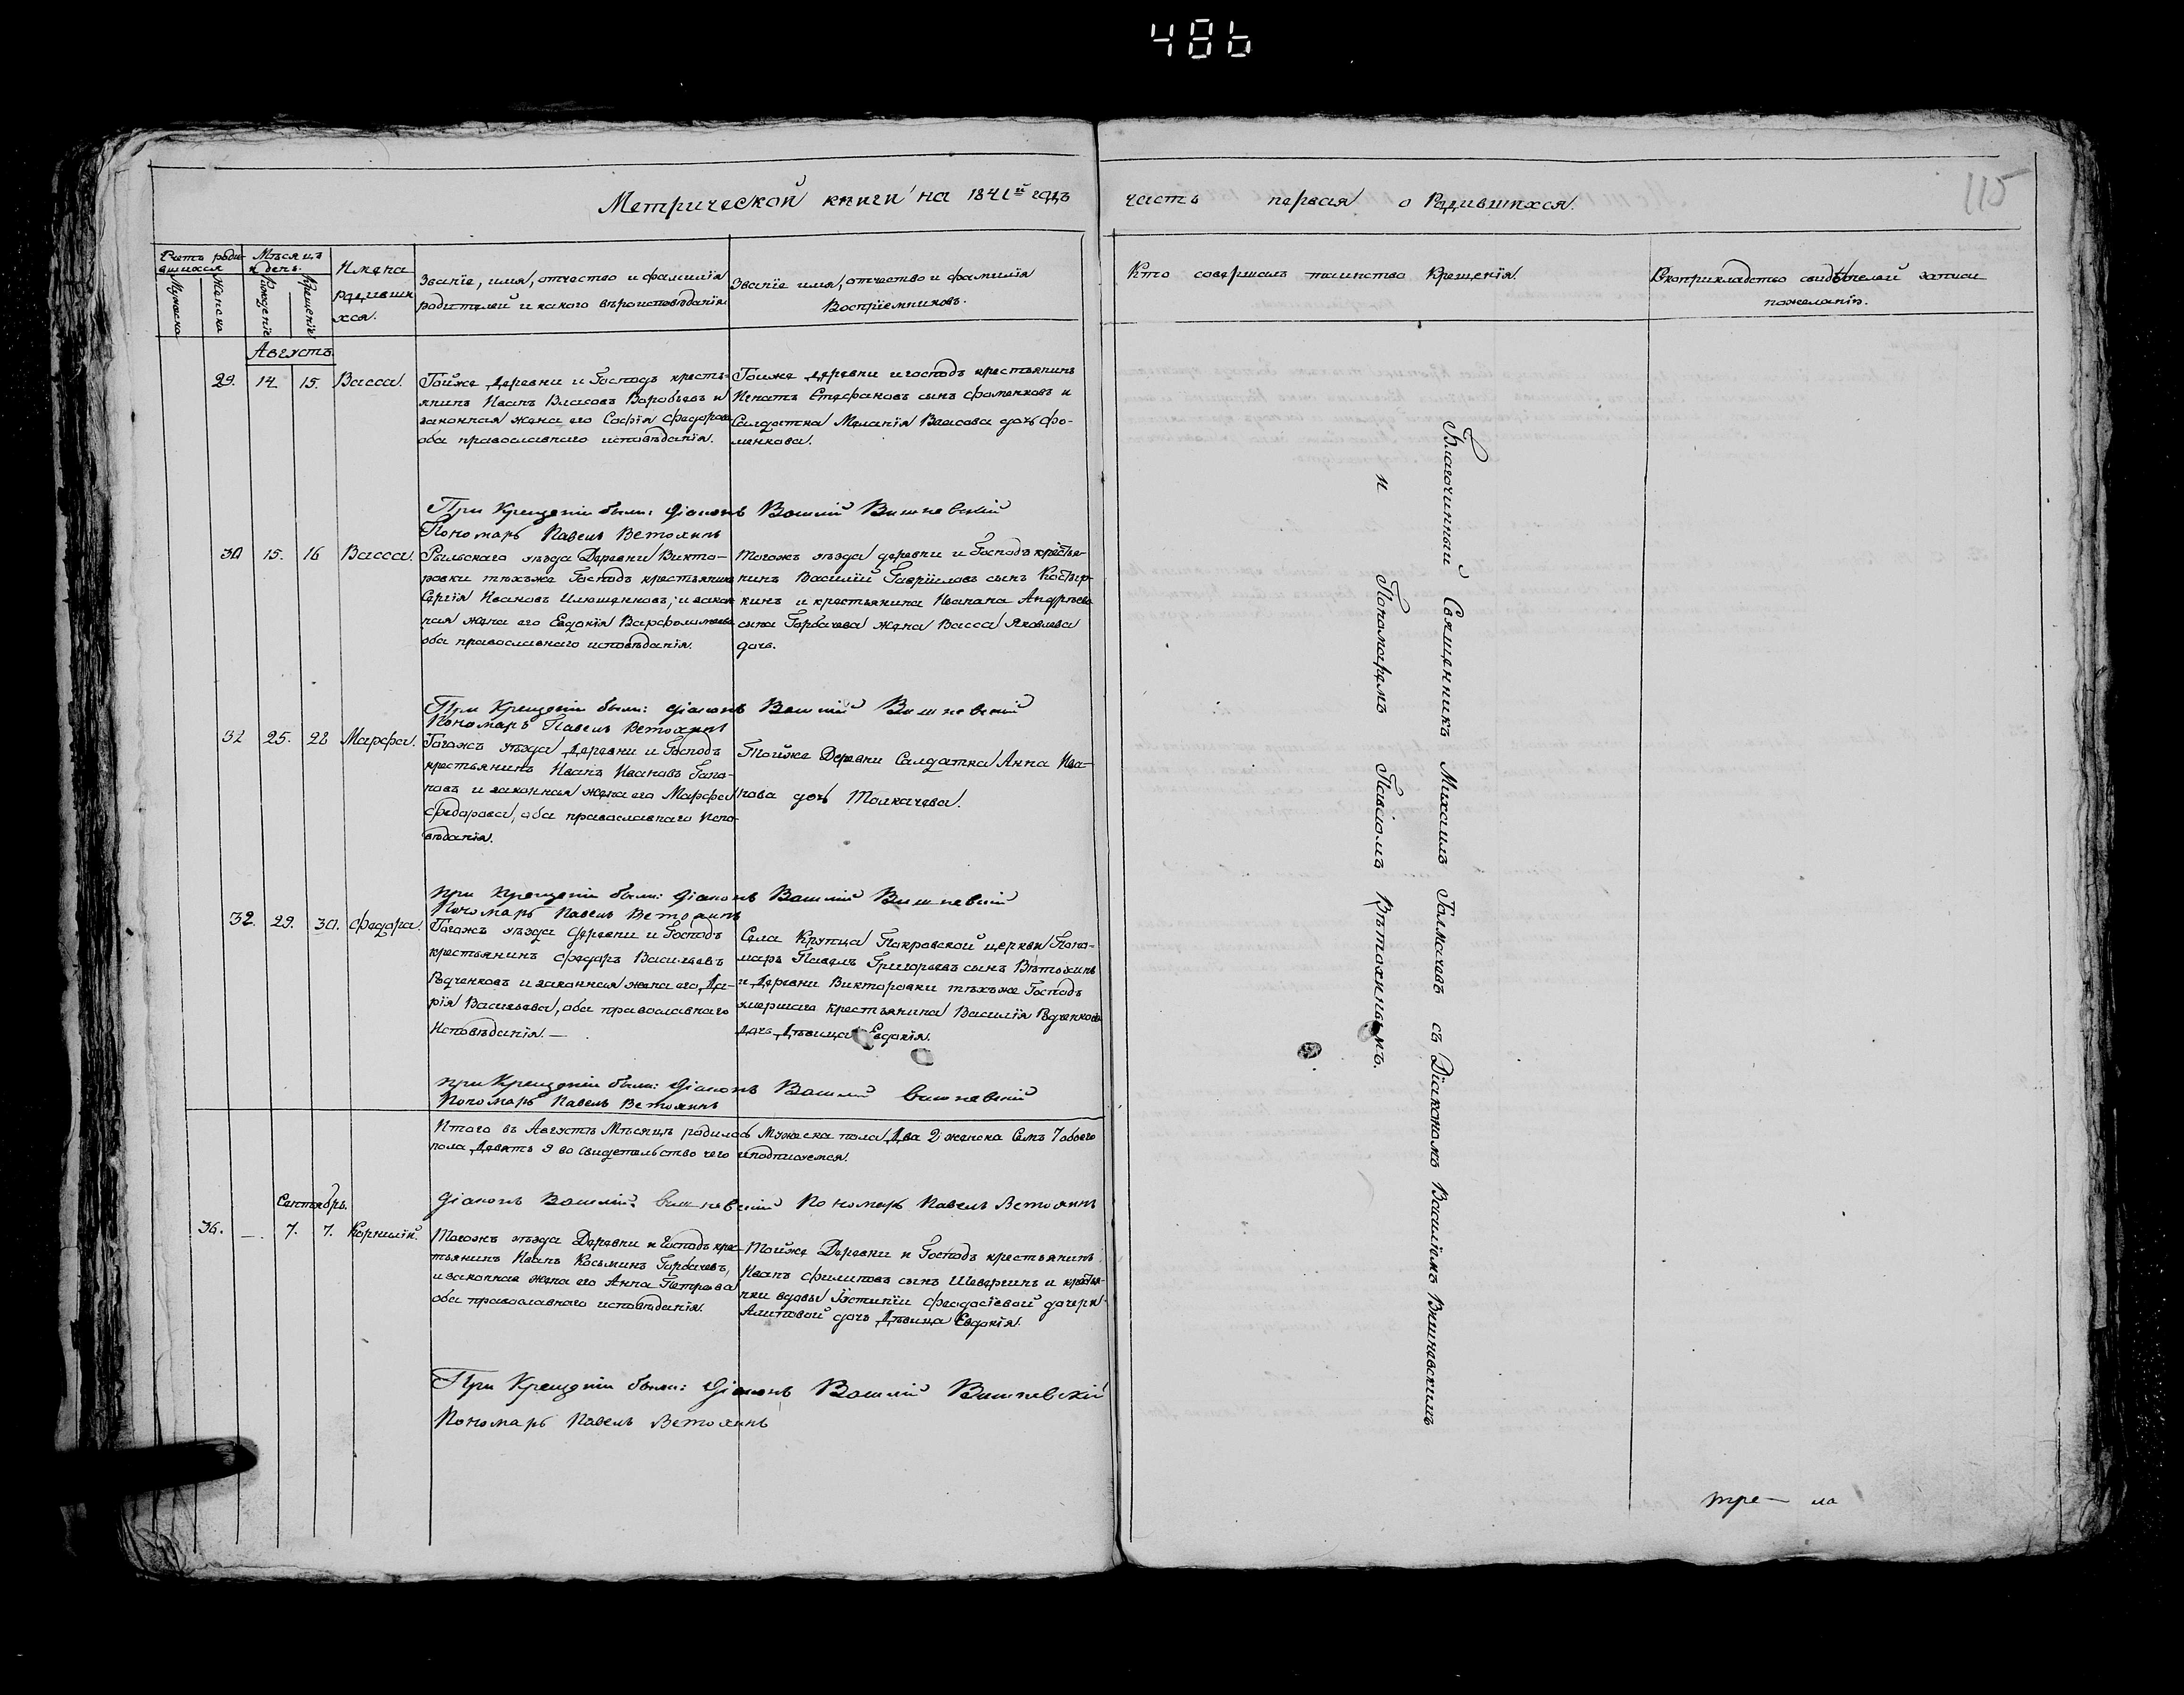 486
115
Метрической книги на 1841й годъ часть первая о Родившихся.
Счетъ роди-
вшихся
Мужеска
Женска
Мѣсяцъ
и день.
Рожденіе
Крещеніе
Имена
родивши
хся.
Званіе, имя, отчество и фамилія
родителей и какого вѣроисповѣданія
Званіе имя, отчество и фамилія
Воспріемниковъ.
Кто совершалъ таинство Крещенія.
Рукоприкладство свидѣтелей записи
пожеланію.
Августъ.
29. 14. 15. Васса.
Тойже деревни и Господъ кресть-
янинъ Иванъ Власовъ Воробьевъ и
законная жена его Софія Федорова
оба православнаго исповѣданія.
Тойже деревни и господъ крестьянинъ
Игнатъ Стефановъ сынъ Фоменковъ и
Салдатка Меланія Власова дочь Фо-
менкова.
При Крещеніи были: Діаконъ Василій Вишневскій
Пономарь Павелъ Ветохинъ
30 15. 16 Васса.
Рыльскаго уѣзда Деревни Викто-
ровки тѣхъже Господъ крестьянинъ
Сергія Ивановъ Илюшенковъ, и закон
ная жена его Евдокія Варфоломеева
оба православнаго исповѣданія.
Тогожъ уѣзда деревни и Господъ крестья-
нинъ Василій Гавріиловъ сынъ Костыр-
кинъ и крестьянина Ивана Андрѣева
сына Горбачева жена Васса Яковлева
дочь.
При Крещеніи были: Діаконъ Василій Вишневскій
Пономарь Павелъ Ветохинъ
32 25. 28 Марфа.
Тогожъ уѣзда деревни и Господъ
крестьянинъ Иванъ Ивановъ Гапо-
новъ и законная жена его Марфа
Федорова, оба православнаго Испо-
вѣданія.
Тойже Деревни Салдатка Анна Ива-
нова дочь Толкачева.
при Крещеніи были: Діаконъ Василій Вишневскій
Пономарь Павелъ Ветохинъ
32. 29. 30. Федора.
Тогожъ уѣзда Деревни и Господъ
крестьянинъ Федоръ Васильевъ
Рѣдченковъ и законная жена его, Да-
рія Васильева, оба православнаго
Исповѣданія. —
Села Крупца Покровской церкви Поно-
марь Павелъ Григорьевъ сынъ Вѣтохинъ
и Деревни Викторовки тѣхъже Господъ
умершаго крестьянина Василія Рѣдченкова
дочь Дѣвица Евдокія.
при Крещеніи были: Діаконъ Василій Вишневскій
Пономарь Павелъ Ветохинъ
Итого въ Августѣ Мѣсяцѣ родилось Мужеска пола Два 2 женска Семь 7 обоего
пола Девять 9 во свидетельство чего и подписуемся.
Діаконъ Василій Вишневскій Пономарь Павелъ Ветохинъ
Сентябрь.
36. —. 7. 7. Корнилій.
Тогожъ уѣзда Деревни и Господъ крес-
тьянинъ Иванъ Косьминъ Горбачевъ,
и законная жена его Анна Петрова
оба православнаго исповѣданія.
Тойже Деревни и Господъ крестьянинъ
Иванъ Филиповъ сынъ Шеверинъ и крестья-
нки вдовы Іустиніи Феодосіевой дочери
Алиповой дочь Дѣвица Евдокія.
При Крещеніи были: Діаконъ Василій Вишневскій
Пономарь Павелъ Ветохинъ
Благочинный Священникъ Михаилъ Толмачевъ съ Діакономъ Василіемъ Вишневскимъ
и Пономаремъ Павломъ Вѣтохинымъ.
тре— ла